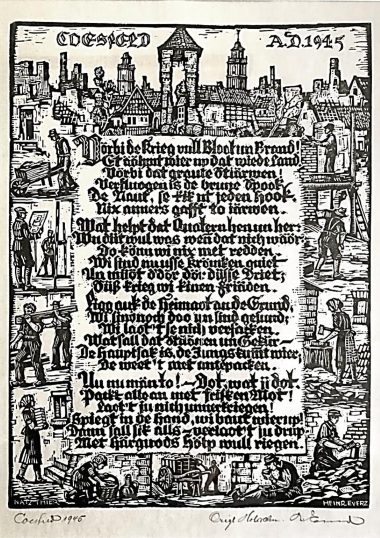 COESFELD A.D. 1945
Vörbi de Krieg vull Bloot un Brand!
Et up dat wiede Land
Vörbi dat graute Stüörwen!
is de brune Spook,
De Naut, se kik ut jeden Hook.
Nix anners gafft to iärwen.
Wat helpt dat Quatern hen un her:
Wu dit wul was, wen dat nich wöör
Do könn wi nix met redden.
Wi sind nu usse quiet
Un mütt dör düsse Driet;
Süß krieg wi kinen Friäden.
Ligg auk de Heimaot an de Grund,
Wi sind noch doo un sind gesund;
Wi laot't se nich versacken.
Wat sall dat un
De Hauptsak is, de Jungs kuemt wier,
De weet't met antepacken.
Un nu män to! – Dot, wat ij dot.
Packt alle an met frisken Moot!
Laot't ju nich unnerkriegen!
Spiegt in de Hand, wi baut wier up!
Dann sall sik alls – verlaot't ju drup
Met Härguods Hölp wull riegen.
NATZ THIER
HEINR. EVERZ
Coesfeld 1946